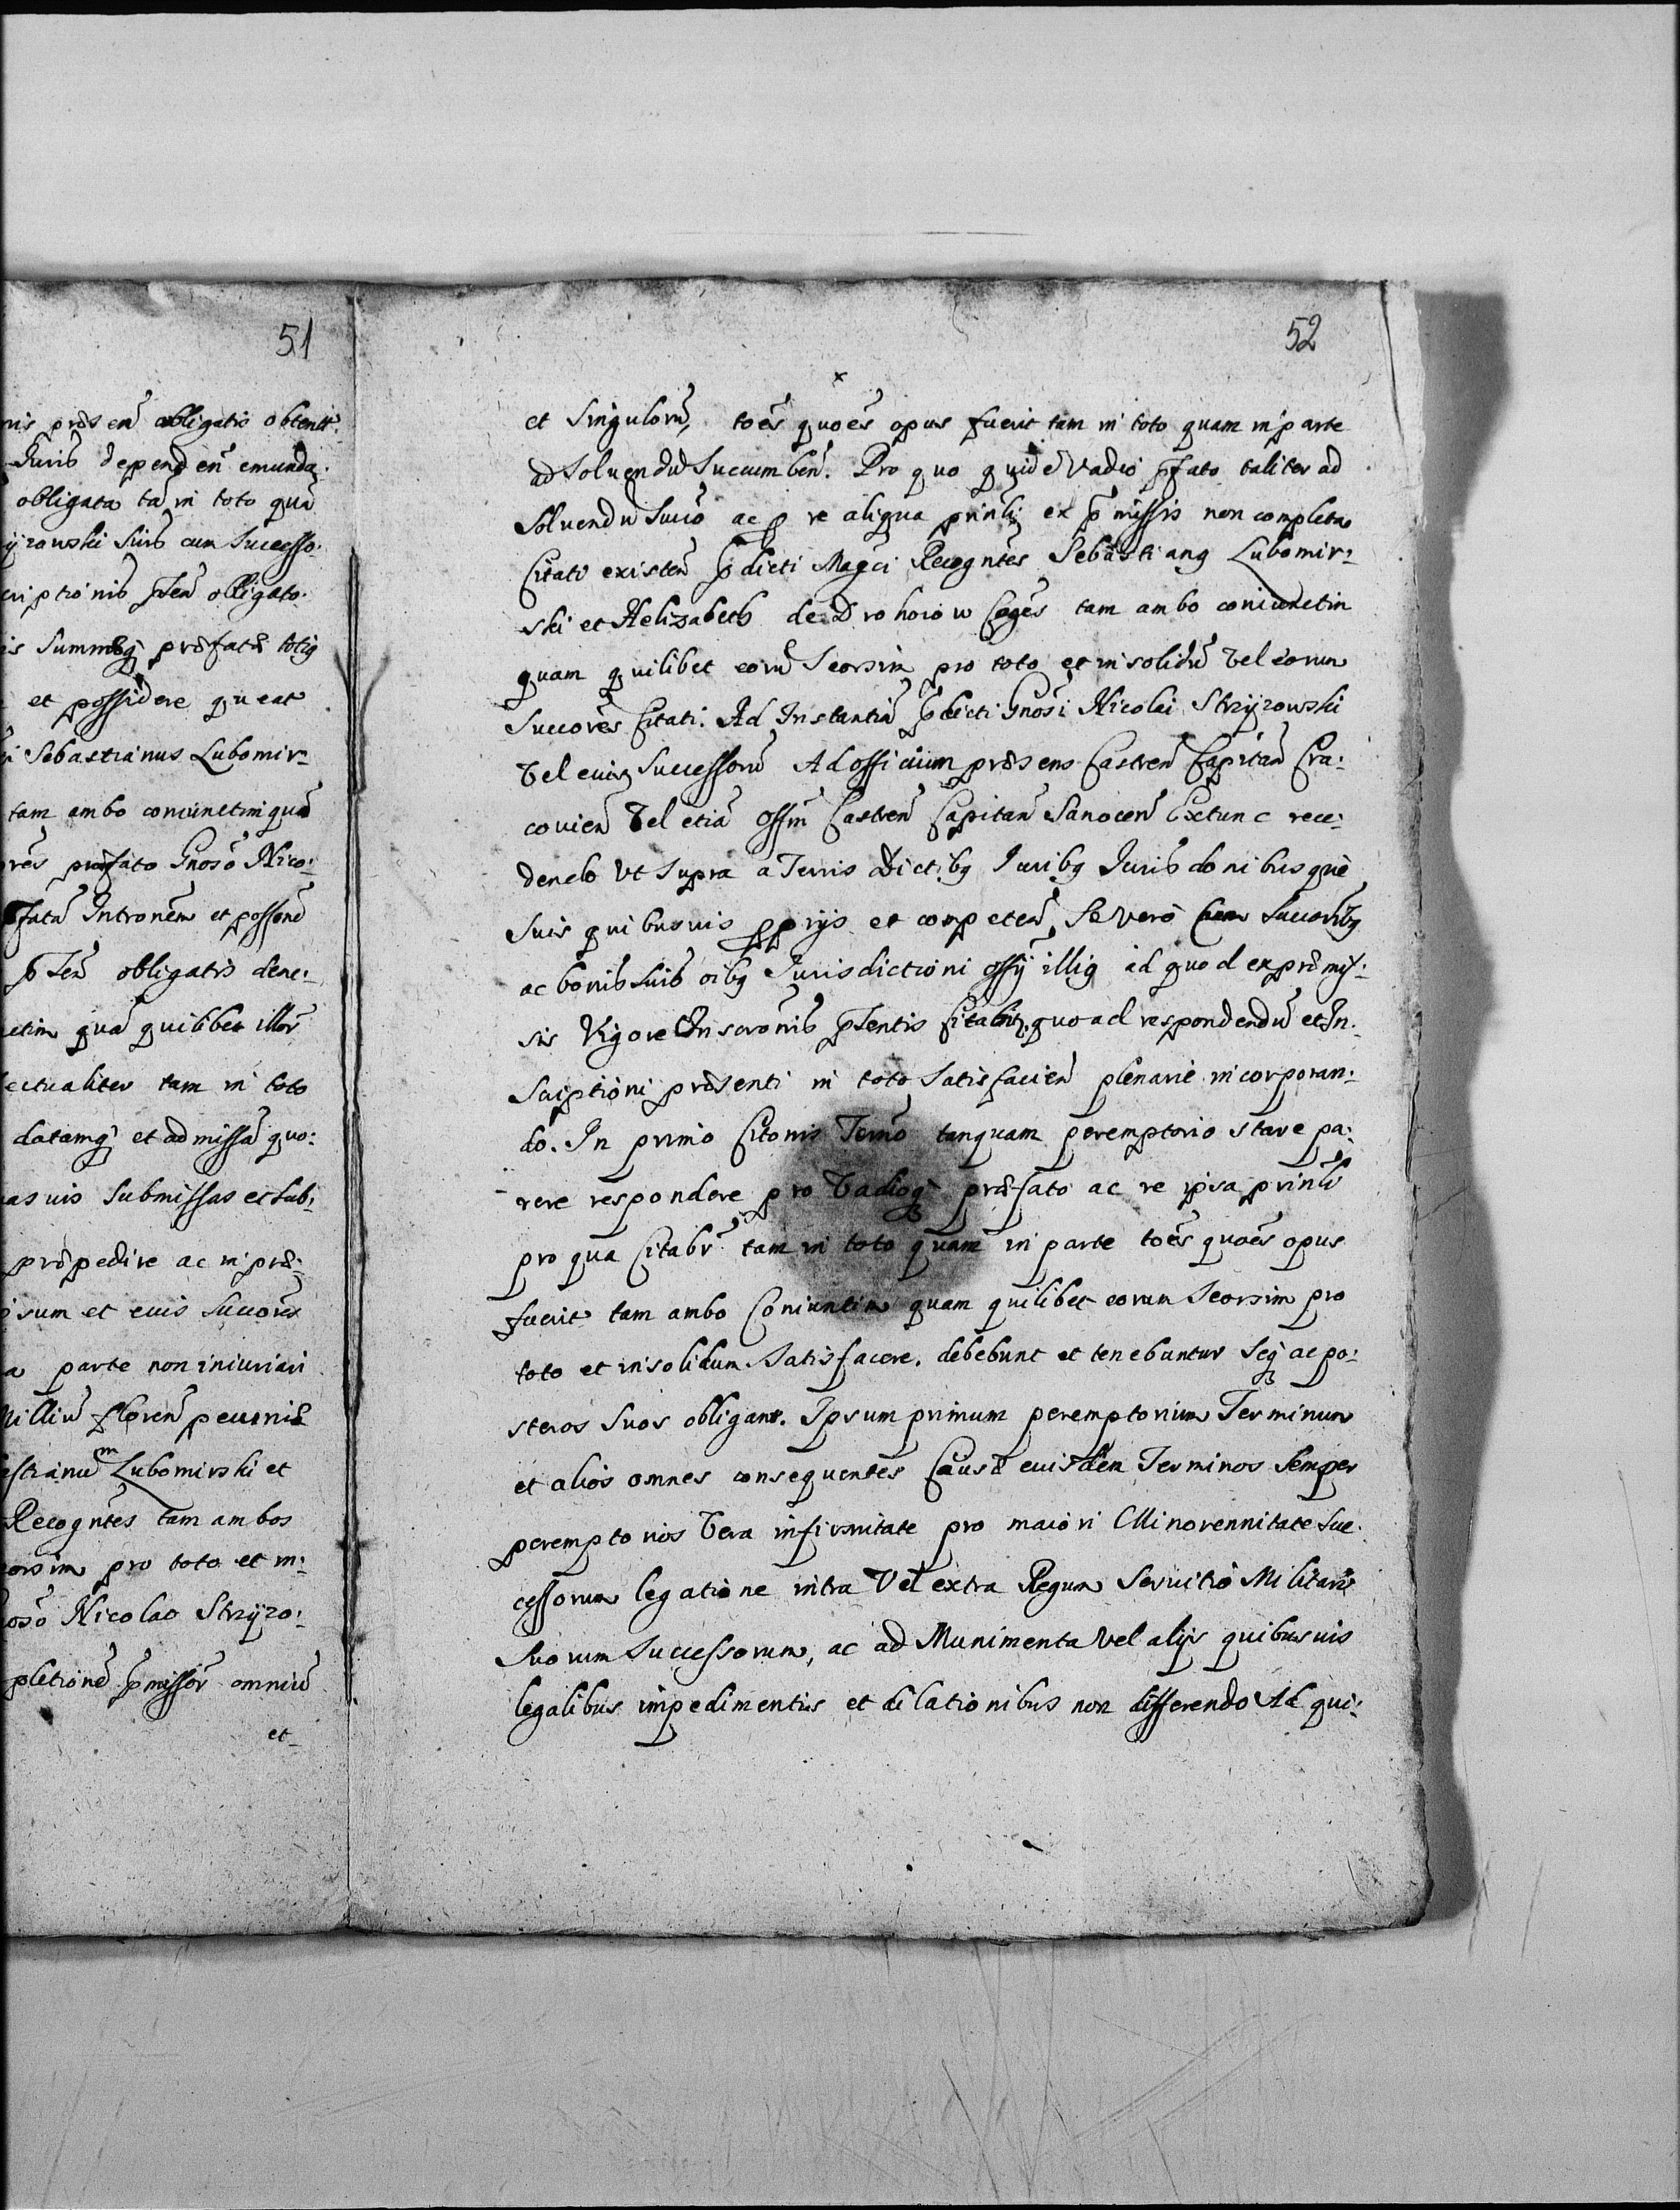 51
nis præsen̄ obligatio obtenit.
Juris dependen̄ emunda:
obligata tā in toto quā
ijzowski suis cum Successo:
criptionis pñten̄ obligato.
is Summæq; præfatæ totiq
et possidere queat
Sebastianus Lubomir=
tam ambo coniunctim quā
præfato Gnoso Nico:
fatā Intronem̄ et possone̅
pñten̄ obligatis dene:
ctim quā quilibet illor̄
ectualiter tam in toto
datamq; et admissā quo:
asuis Submissas et sub:
præpedire ac in præ:
sum et euis Succores
a parte non iniuriari
Milliū floren̄ pecuniæ
astianum Lubomirski et
Recogntes tam ambos
orsim pro toto et in:
oso Nicolao Strzyzo:
pletione̅ pmissor̄ omniū
et
52
et singulorū, toēs quoēs opus fuerit tam in toto quam in parte
ad Soluendū Succumben̄. Pro quo quidē Vadio p̄fato taliter ad
Soluendū Succo ac p re aliqua prinli ex p̄missis non completa
Citati existen̄ p̄dicti Magci Recogntes Sebastianq Lubomir=
ski et Helizabeth de Drohoiow Coges tam ambo coniunctim
quam quilibet eorū Seorsim pro toto et in solidū vel eorum
Succores Citati. Ad Instantiā p̄dicti Gnosi Nicolai Strzyzowski
Vel euiq Successorū Ad officium præsens Castren̄ Capitan̄ Cra:
couien̄ Vel etiā Offm Castren̄ Capitan̄ Sanocen̄ Extunc rece:
dendo Vt Supra a Terris Dictibq Juribq Jurisdonibusque
Suis quibusuis pprijs et competen̄, Se vero Cum Succoribq
ac bonis suis oibq Jurisdictioni offij illiq ad quod ex præmis:
sis Vigore Inscronis pñtentis Citabr̄. quo ad respondendū et In:
scriptioni præsenti in toto satisfacien̄ plenarie incorporan:
do. In primo Citonis Termo tanquam peremptorio stare pa:
rere respondere pro Vadioq; præfato ac re ipsa prinli
pro qua Citabr̄ tam in toto quam in parte toēs quoēs opus
fuerit tam ambo Coniunctim quam quilibet eorum Seorsim pro
toto et in solidum Satisfacere. debebunt et tenebuntur Seq; ac po:
steros suos obligant. Ipsum primum peremptorium Terminum
et alios omnes consequentes Causæ euisdem Terminos Semper
peremptorios Vera infirmitate pro maiori Minorennitate Suc:
cessorum legatione intra Vel extra Regnum Seruitio Militari
Suorum Successorum, ac ad Munimenta Vel alijs quibusuis
legalibus impedimentis et dilationibus non differendo Ad qui: